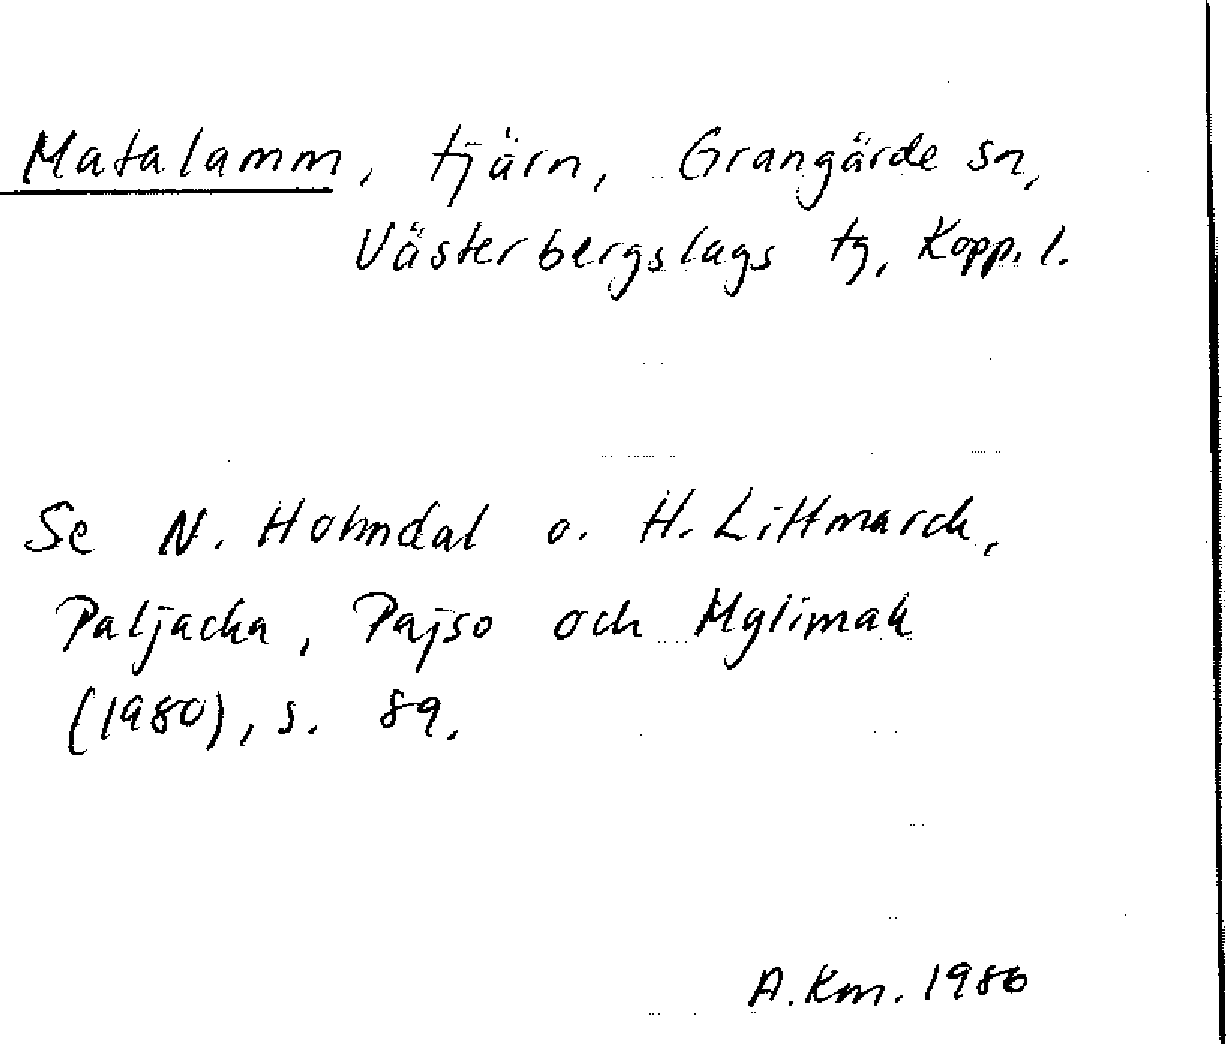 Matalamm, tjärn, Grangärde sn,
Västerbergslags tg, Kopp. l.
Se N. Holmdal o. H. Littmarck,
Paljacka, Pajso och Mylimak
(1980), s. 89.
A. Km. 1986